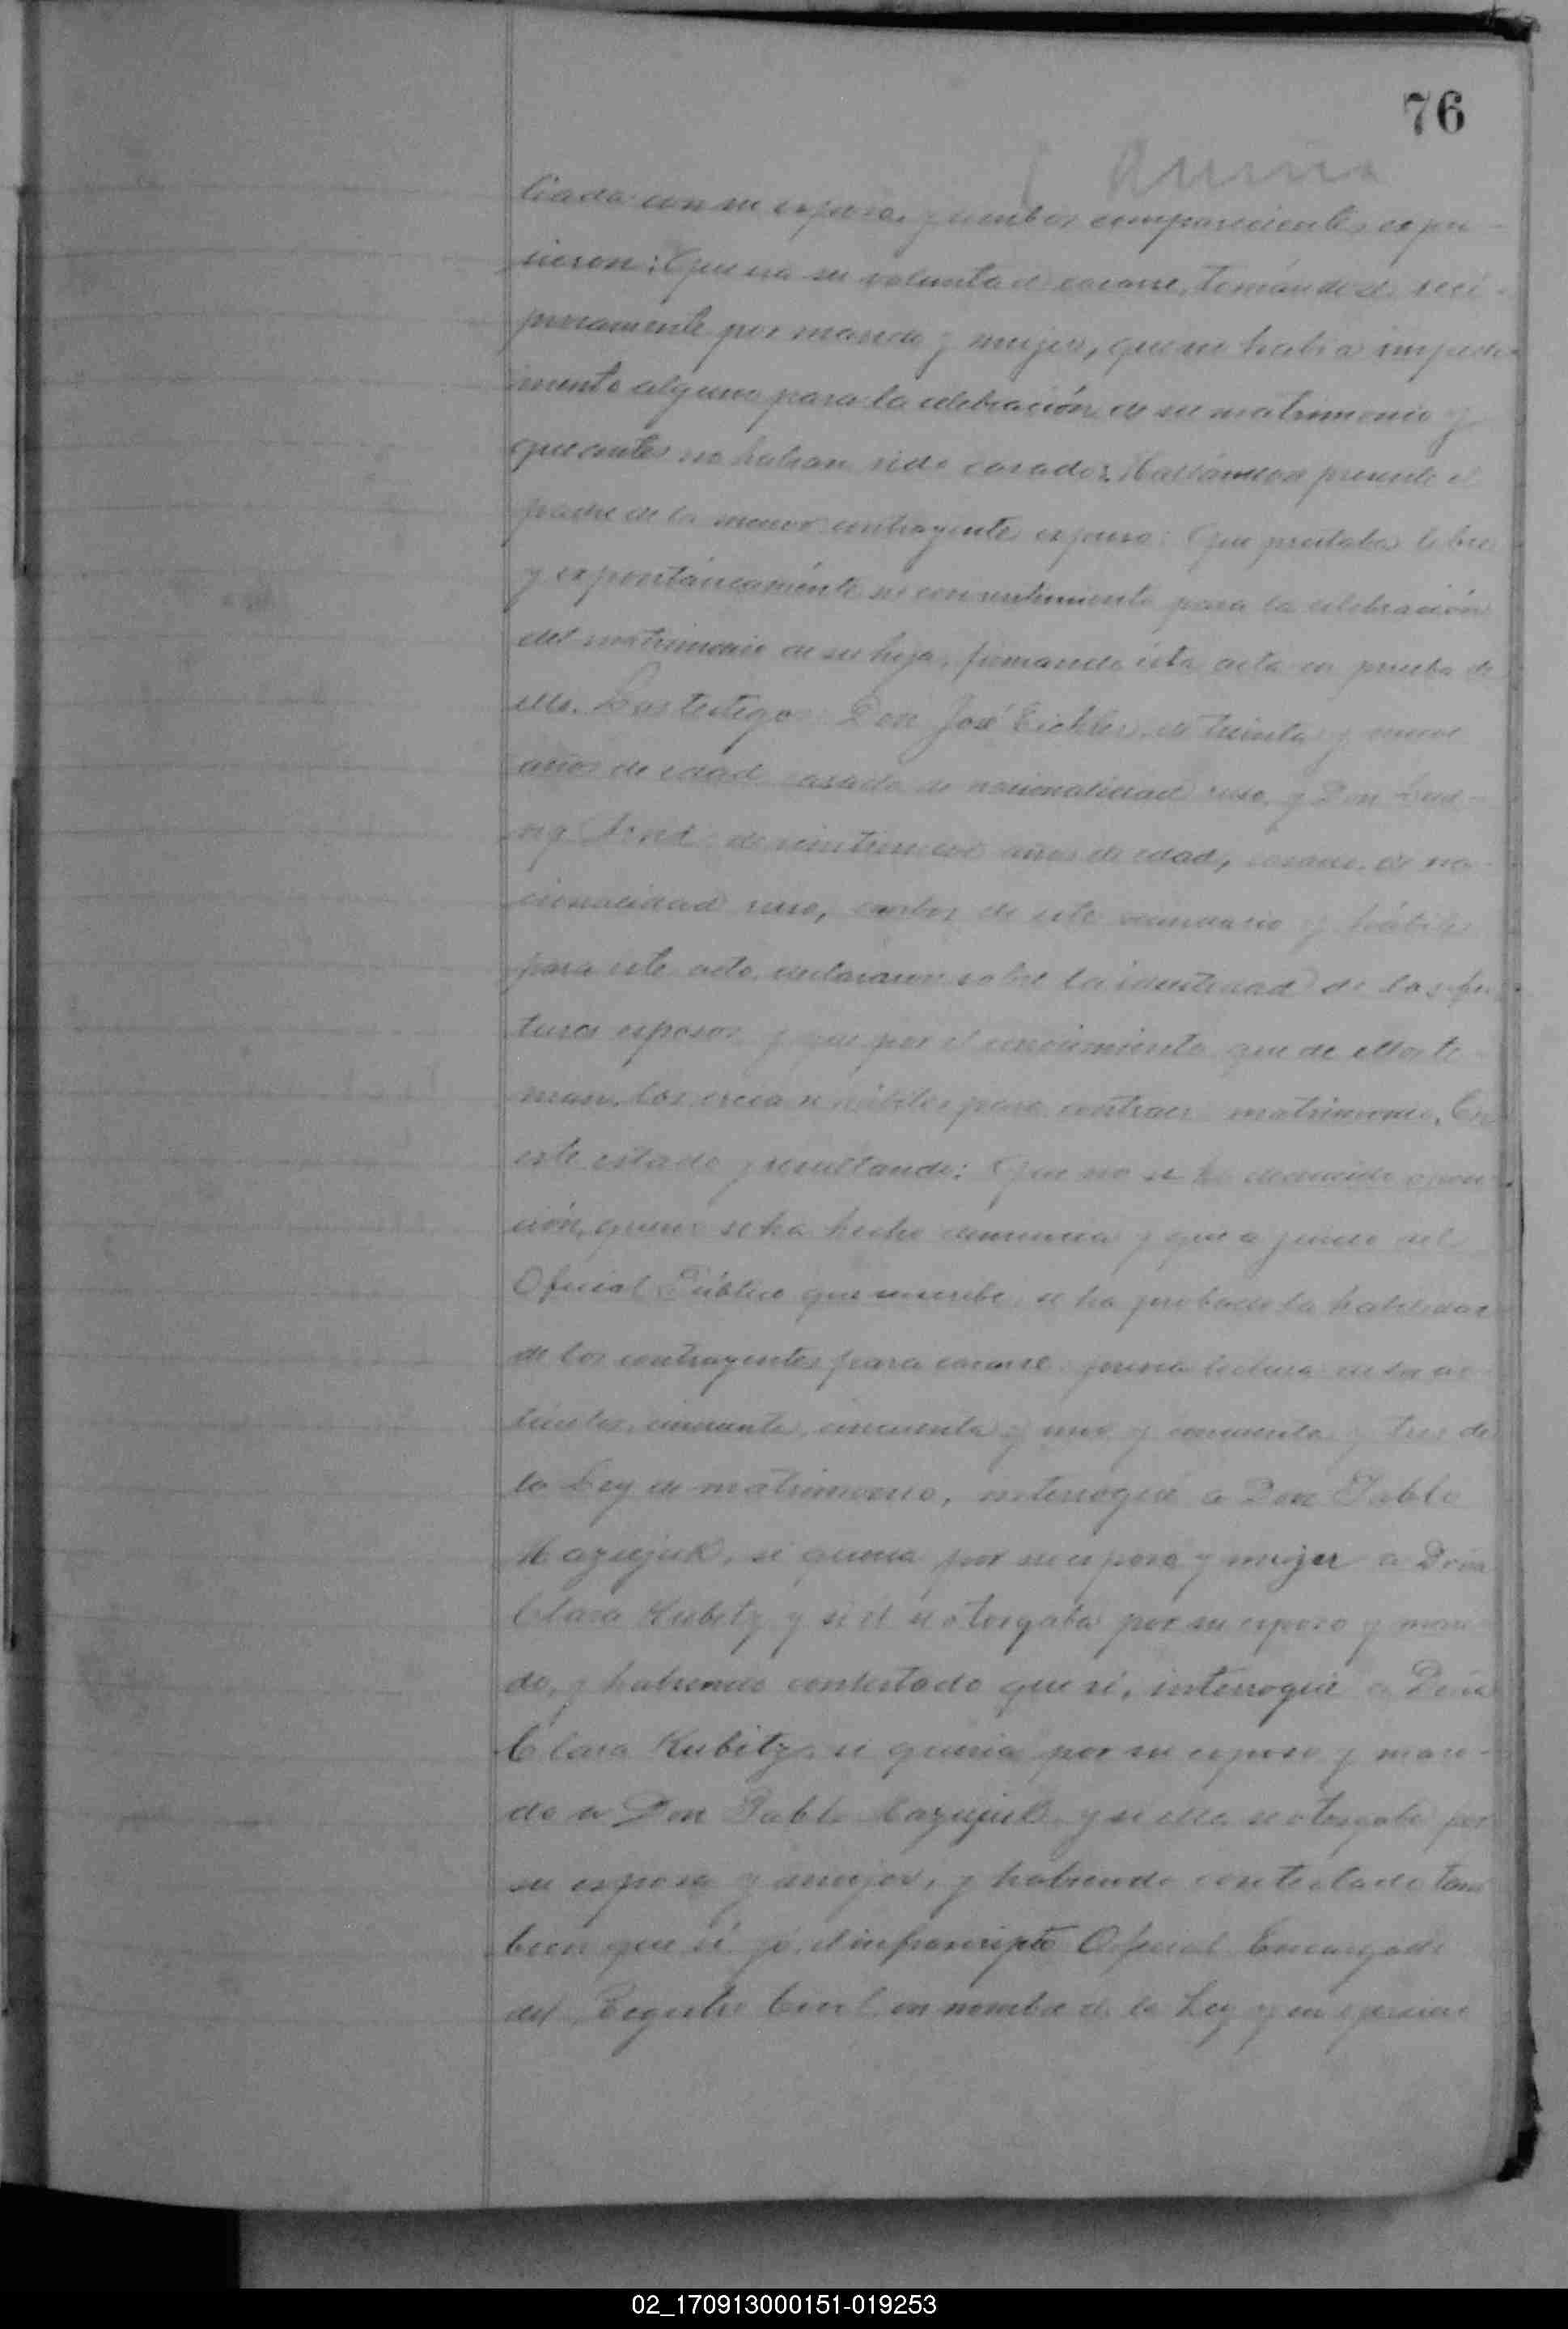 76
liado con su esposa, y ambos comparecientes expu-
sieron: Que era su voluntad casarse, tomándose reci-
procamente por marido y mujer, que no había impedi-
mento alguno para la celebración de su matrimonio y
que antes no habian sido casados. Hallándose presente el
padre de la menor contrayente expuso: Que prestaba libre
y expontáneamente su consentimiento para la celebración
del matrimonio de su hija, firmando esta acta en prueba de
ello. Los testigos Don José Eichler, de treinta y nueve
años de edad casado de nacionalidad ruso, y Don Lud-
vig de años de edad, casado, de na-
cionalidad ruso, ambos de este vecindario y hábiles
para este acto, declararon sobre la identidad de los fu-
turos esposos y que por el conocimiento que de ellos te-
nian, los creian hábiles para contraer matrimonio. En
este estado y resultando: Que no se ha deducido oposi-
ción, que no se ha hecho denuncia y que a juicio del
Oficial Público que suscribe, se ha probado la habilidad
de los contrayentes para casarse, previa lectura de los ar-
tículos, cincuenta, cincuenta y uno y cincuenta y tres de
la Ley de matrimonio, interrogué a Don Pablo
Mazujuk, si queria por su esposa y mujer a Doña
Clara Kubitz y si él se otorgaba por su esposo y mari-
do, y habiendo contestado que si, interrogué a Doña
Clara Kubitz, si queria por su esposo y mari-
do a Don Pablo Mazujuk, y si ella se otorgaba por
su esposa y mujer, y habiendo contestado tam
bien que si yó, el infrascripto Oficial Encargado
del Registro Civil, en nombre de la Ley y en ejercicio
02_170913000151-019253